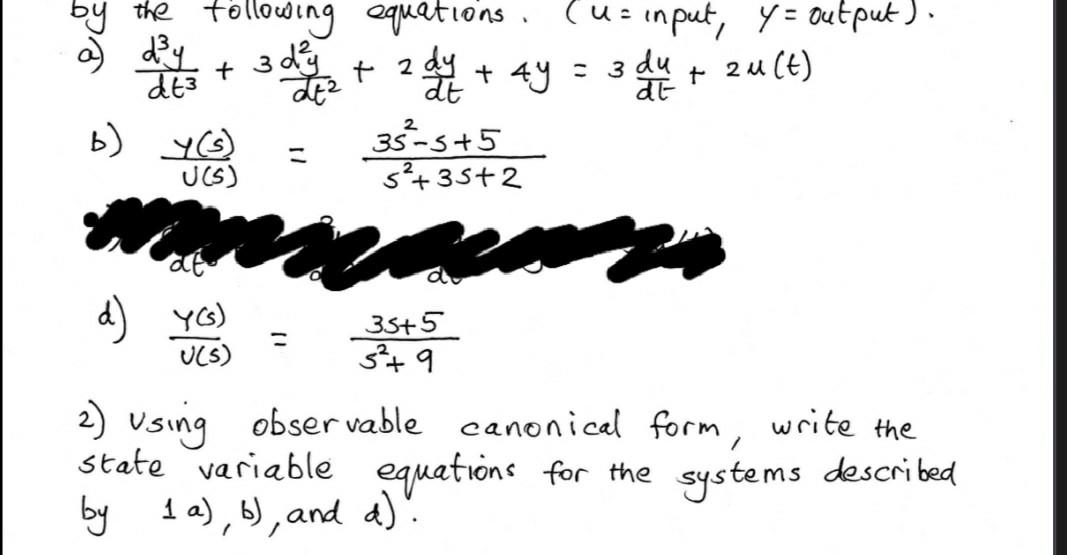 by the following equations. (u = input, y = output).
a) d³y/dt³ + 3 d²y/dt² + 2 dy/dt + 4y = 3 du/dt + 2u(t)
b) Y(s)/U(s) = 3s²-s+5/s²+3s+2
d) Y(s)/U(s) = 3s+5/s²+9
2) Using observable canonical form, write the
state variable equations for the systems described
by 1 a), b), and d).